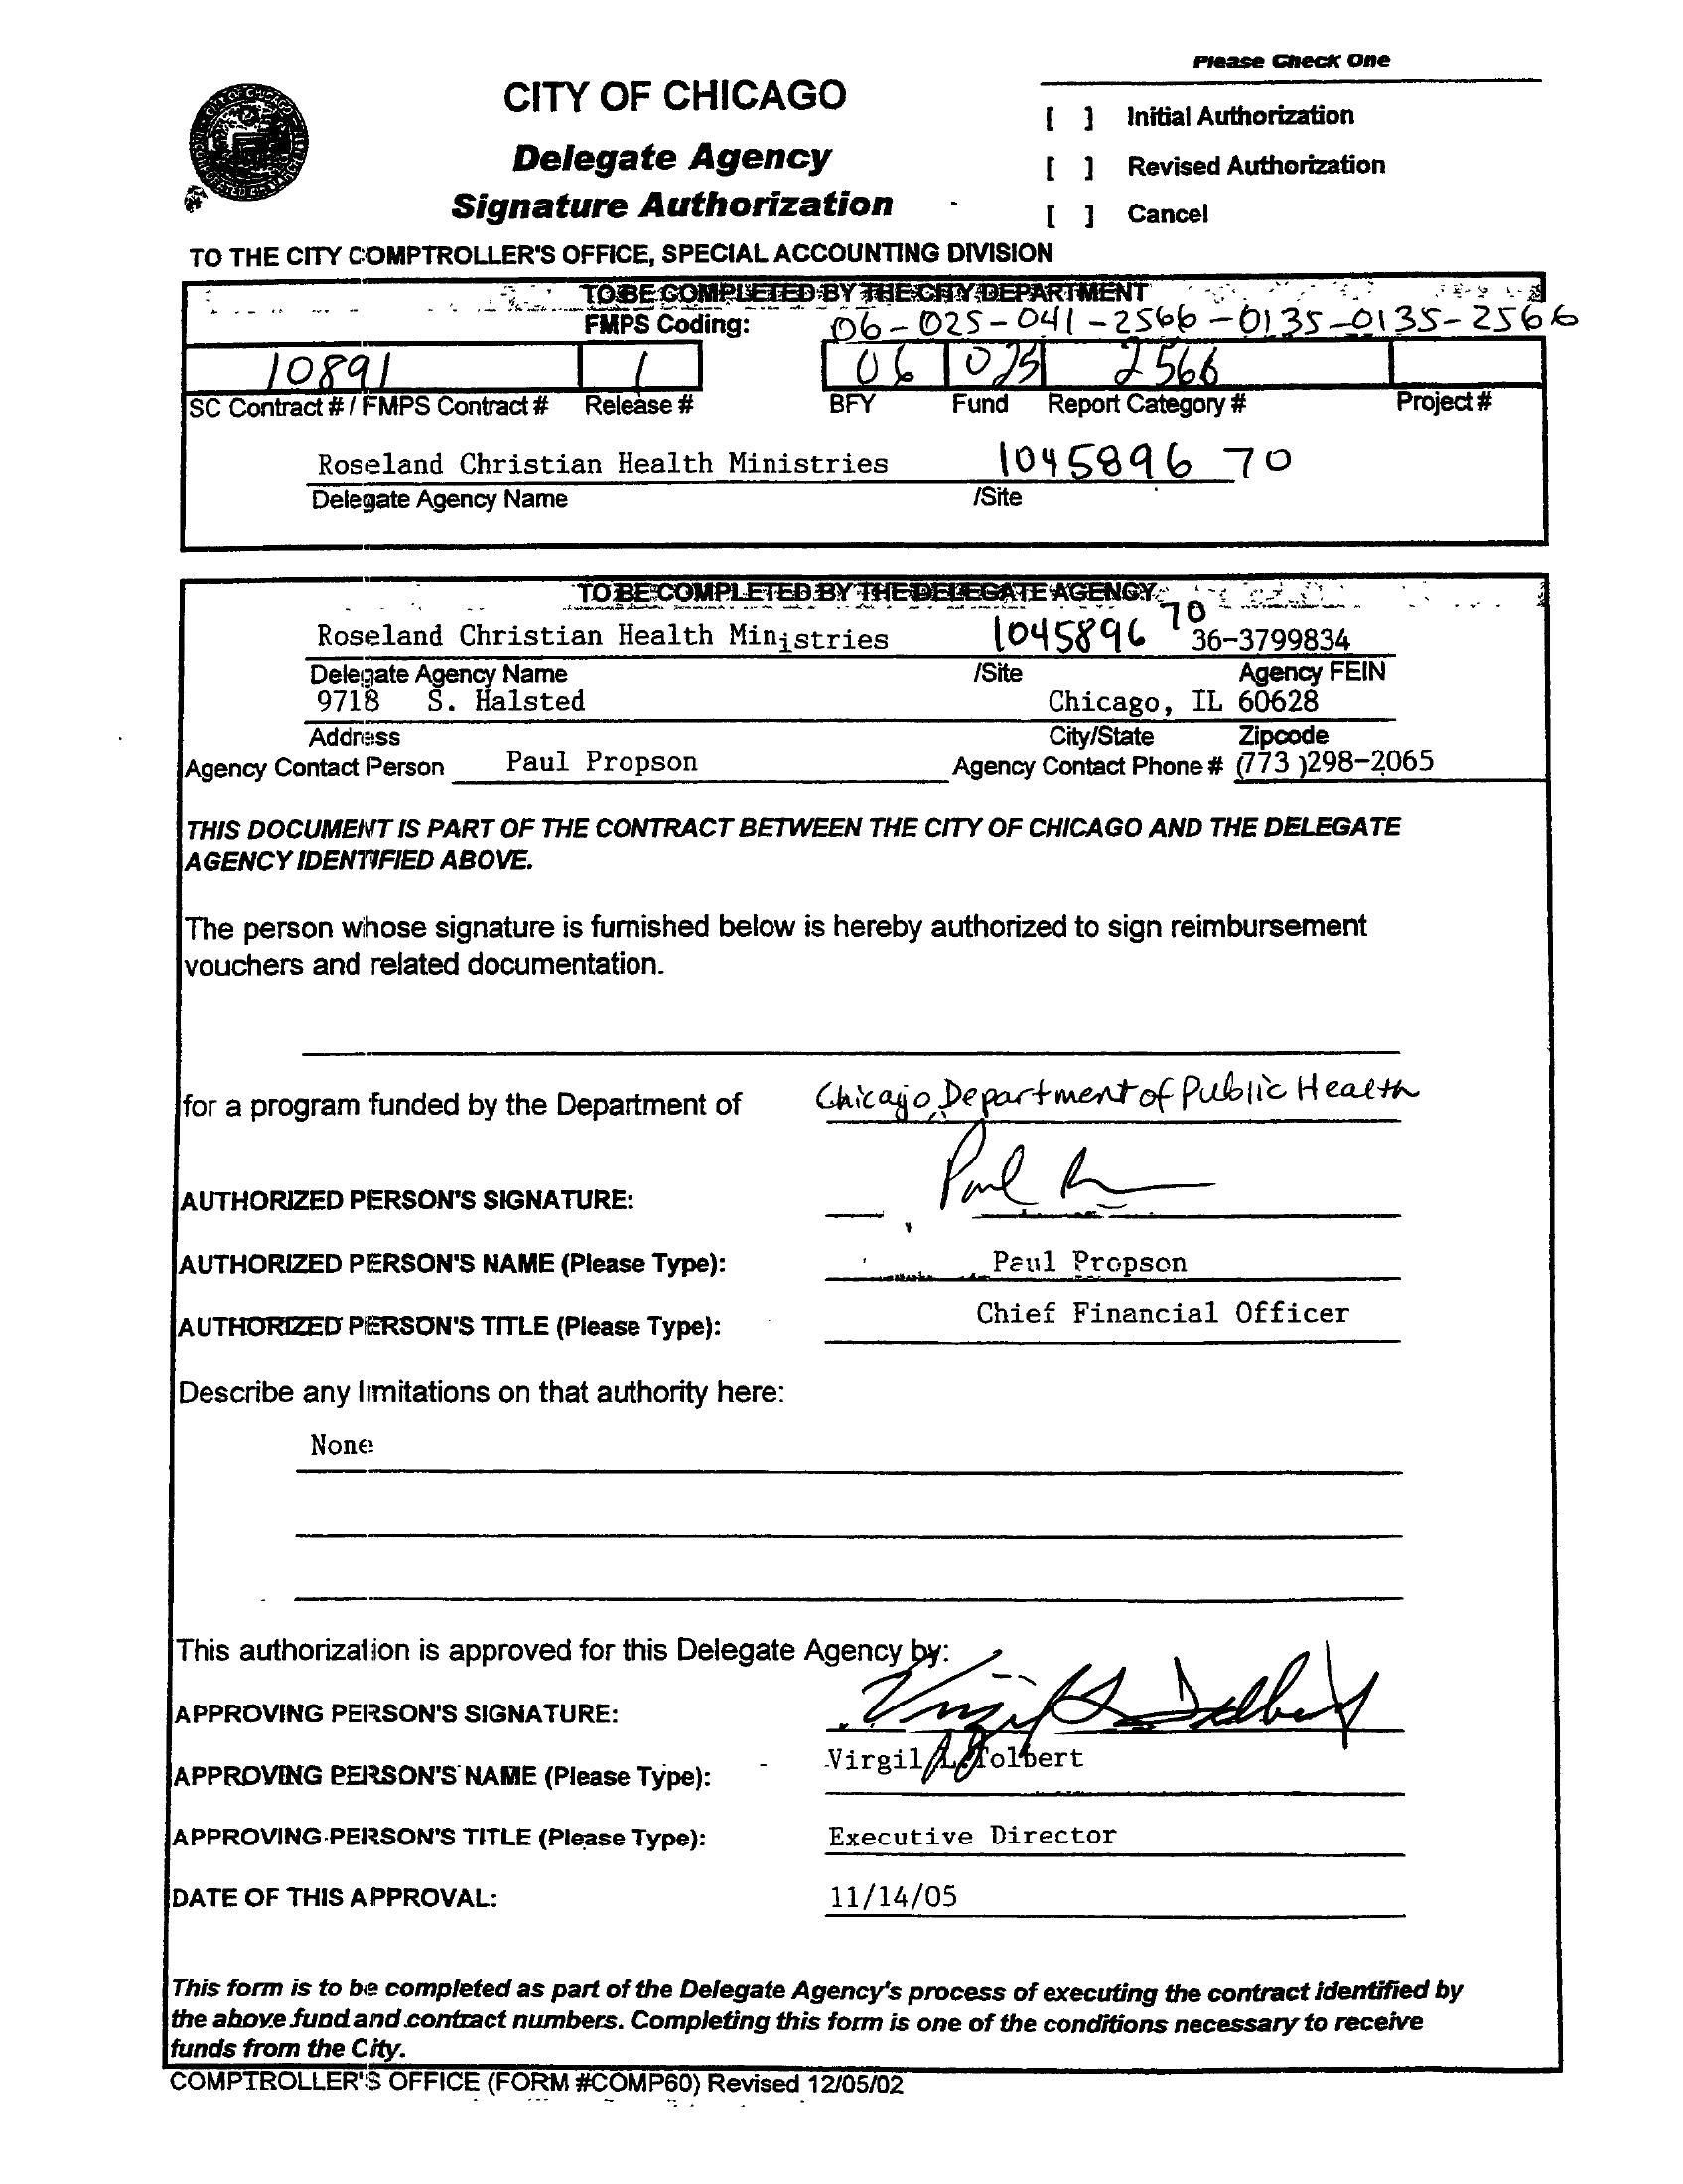 Please Check One
CITY OF CHICAGO
[ ] Initial Authorization
Delegate Agency
[ ] Revised Authorization
Signature Authorization
[ ] Cancel
TO THE CITY COMPTROLLER'S OFFICE, SPECIAL ACCOUNTING DIVISION
TO BE COMPLETED BY THE CITY DEPARTMENT
FMPS Coding: 06-025-041-2566-0135-0135-2566
10891 1 06 025 2566
SC Contract # / FMPS Contract # Release # BFY Fund Report Category # Project #
Roseland Christian Health Ministries 1045896 70
Delegate Agency Name /Site
TO BE COMPLETED BY THE DELEGATE AGENCY
Roseland Christian Health Ministries 1045896 70 36-3799834
Delegate Agency Name /Site Agency FEIN
9718 S. Halsted Chicago, IL 60628
Address City/State Zipcode
Agency Contact Person Paul Propson Agency Contact Phone # (773 )298-2065
THIS DOCUMENT IS PART OF THE CONTRACT BETWEEN THE CITY OF CHICAGO AND THE DELEGATE
AGENCY IDENTIFIED ABOVE.
The person whose signature is furnished below is hereby authorized to sign reimbursement
vouchers and related documentation.
for a program funded by the Department of Chicago Department of Public Health
AUTHORIZED PERSON'S SIGNATURE: Paul
AUTHORIZED PERSON'S NAME (Please Type): Paul Propson
AUTHORIZED PERSON'S TITLE (Please Type): Chief Financial Officer
Describe any limitations on that authority here:
None
This authorization is approved for this Delegate Agency by:
APPROVING PERSON'S SIGNATURE: Virgil Tolbert
APPROVING PERSON'S NAME (Please Type): Virgil L. Tolbert
APPROVING PERSON'S TITLE (Please Type): Executive Director
DATE OF THIS APPROVAL: 11/14/05
This form is to be completed as part of the Delegate Agency's process of executing the contract identified by
the above fund and contract numbers. Completing this form is one of the conditions necessary to receive
funds from the City.
COMPTROLLER'S OFFICE (FORM #COMP60) Revised 12/05/02